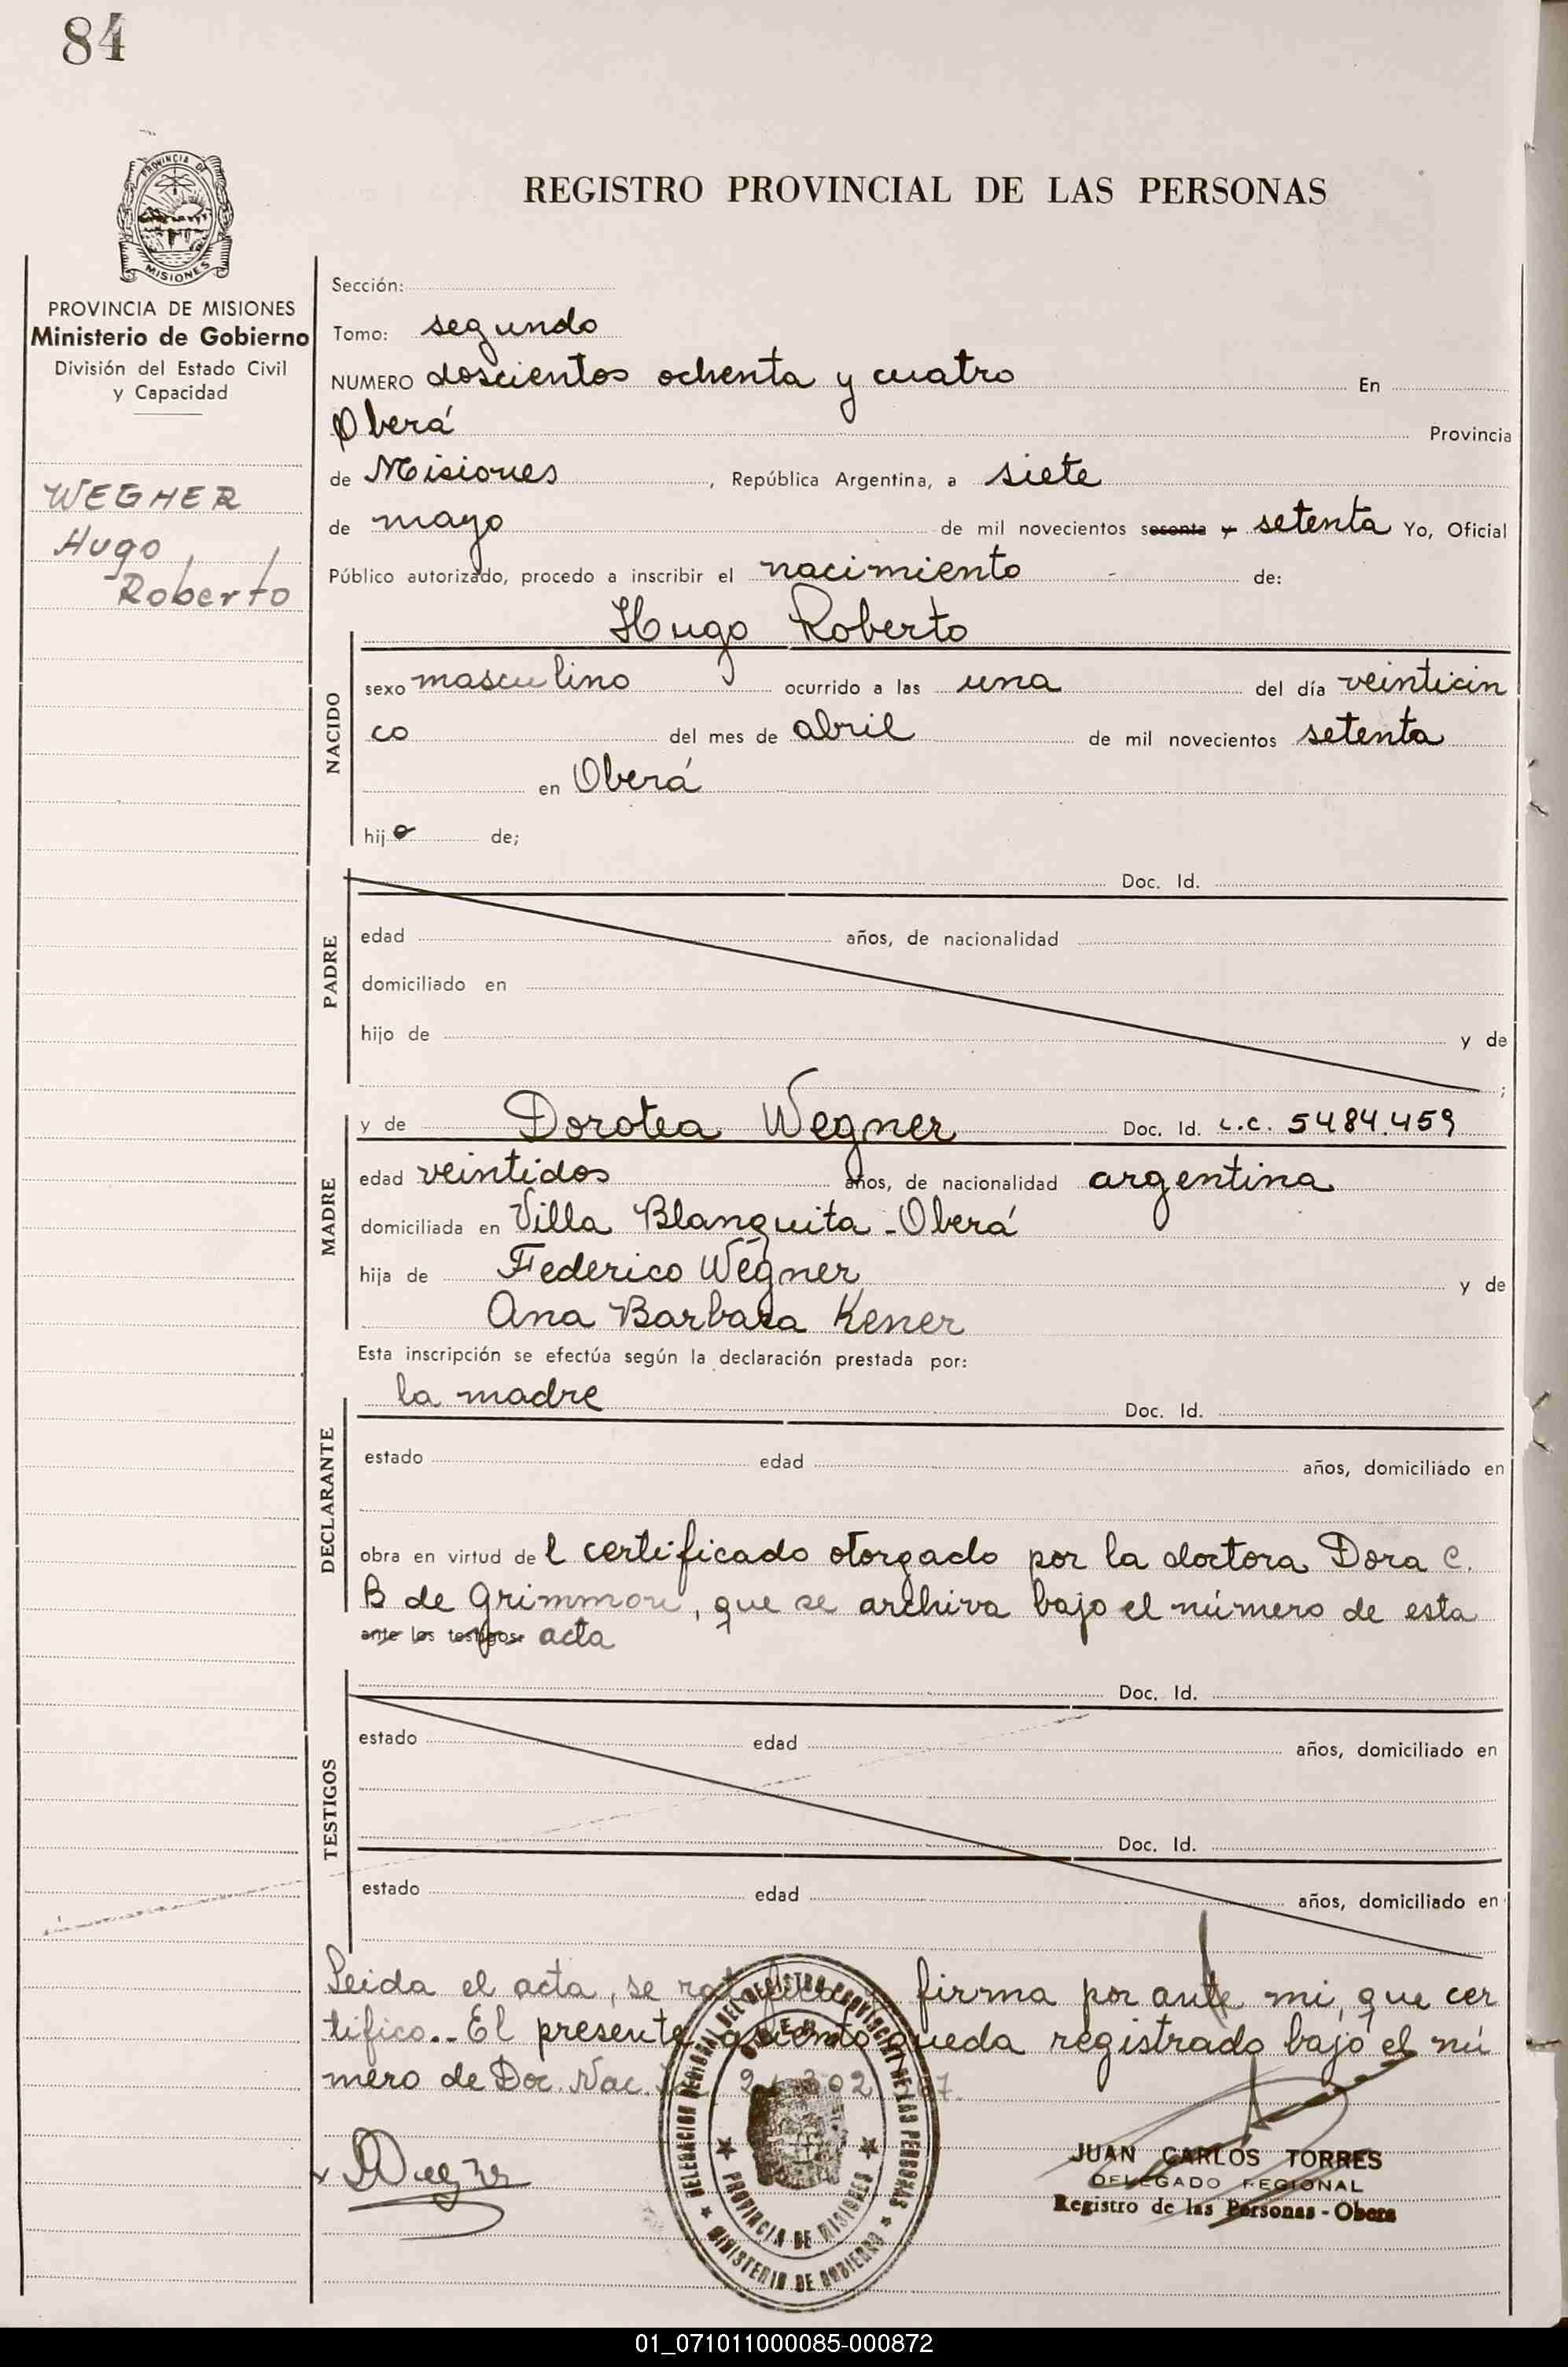 84
PROVINCIA DE
MISIONES
PROVINCIA DE MISIONES
Ministerio de Gobierno
División del Estado Civil
y Capacidad
WEGNER
Hugo
Roberto
REGISTRO PROVINCIAL DE LAS PERSONAS
Sección:
Tomo: segundo
NUMERO doscientos ochenta y cuatro En
Oberá Provincia
de Misiones, República Argentina, a siete
de mayo de mil novecientos sesenta y setenta Yo, Oficial
Público autorizado, procedo a inscribir el nacimiento de:
Hugo Roberto
NACIDO
sexo masculino ocurrido a las una del día veinticin
co del mes de abril de mil novecientos setenta
en Oberá
hijo de;
PADRE
Doc. Id.
edad años, de nacionalidad
domiciliado en
hijo de y de
;
MADRE
y de Dorotea Wegner Doc. Id. L.C. 5484.459
edad veintidos años, de nacionalidad argentina
domiciliada en Villa Blanquita - Oberá
hija de Federico Wegner y de
Ana Barbara Kener
Esta inscripción se efectúa según la declaración prestada por:
DECLARANTE
la madre Doc. Id.
estado edad años, domiciliado en
obra en virtud del certificado otorgado por la doctora Dora C.
B de Grimmon, que se archiva bajo el número de esta
ante los testigos: acta
TESTIGOS
Doc. Id.
estado edad años, domiciliado en
Doc. Id.
estado edad años, domiciliado en
Leida el acta, se ratifica firma por ante mi, que cer
tifico.- El presente asiento queda registrado bajo el nú
mero de Doc. Nac.
DELEGACION REGIONAL DEL REGISTRO PROVINCIAL DE LAS PERSONAS
OBERA
PROVINCIA DE MISIONES
MINISTERIO DE GOBIERNO
DWegner
JUAN CARLOS TORRES
DELEGADO REGIONAL
Registro de las Personas - Obera
01_071011000085-000872